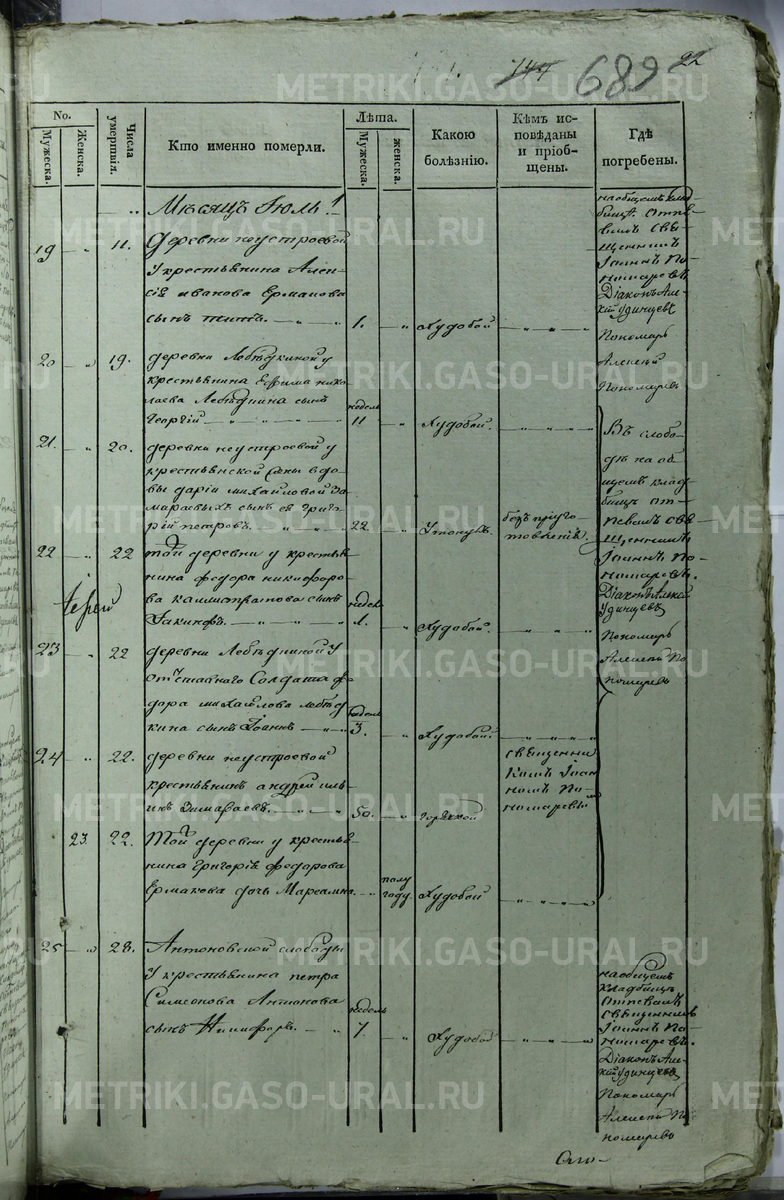 689 22
No.
Мужеска.
Женска.
Числа умертвія.
Кто именно померли.
Лѣта.
Мужеска.
Женска.
Какою болѣзнію.
Кѣмъ исповѣданы и пріобщены.
Гдѣ погребены.
Мѣсяцъ Іюль
19 11. деревни неустроевой
у крестьянина Алек-
сія иванова Ермакова
сынъ 1. Худобой
на общемъ клад-
бищѣ отпе-
валъ свя-
щенникъ
Іоаннъ По-
номаревъ
Діаконъ Але-
ксій Удинцевъ
Пономарь
Алексей
Пономаревъ
20 19. деревни Лебѣдкиной у
крестьянина Ефима нико-
лаева Лебѣдкина сынъ
Георгій недель 11 Худобой
21. 20. деревни неустроевой у
крестьянской жены вдо-
вы даріи михайловой За-
мараевыхъ сынъ ея Григо-
рій петровъ 22. Утонулъ. безъ приуго-
товленія.
Въ слобо-
дѣ на об-
щемъ клад-
бищѣ от-
певалъ свя-
щенникъ
Іоаннъ По-
номаревъ.
Діаконъ Алексій
Удинцевъ
Пономарь
Алексей По-
номаревъ
22 22 той деревни у крестья-
нина федора никифоро-
ва каллистратова сынъ
Іакинфъ. недель 1. Худобой.
Іерей
23 22 деревни Лебѣдкиной у
отставнаго Солдата фе-
дора михайлова лебѣд-
кина сынъ Іоаннъ недель 3. Худобой
24 22. деревни неустроевой
крестьянинъ андрей иль-
инъ Замараевъ. 50. горячкой
священни-
комъ Іоан-
номъ По-
номаревы
23. 22. Той деревни у крестья-
нина Григорія федорова
Ермакова дочь полу году. Худобой
25 28. Антоновской слободы
у крестьянина петра
Симеонова Антонова
сынъ Никифоръ. недель 7 Худобой
на общемъ
кладбищѣ
отпевалъ
священникъ
Іоаннъ По-
номаревъ.
Діаконъ Але-
ксій Удинцевъ
Пономарь
Алексей По-
номаревъ
METRIKI.GASO-URAL.RU